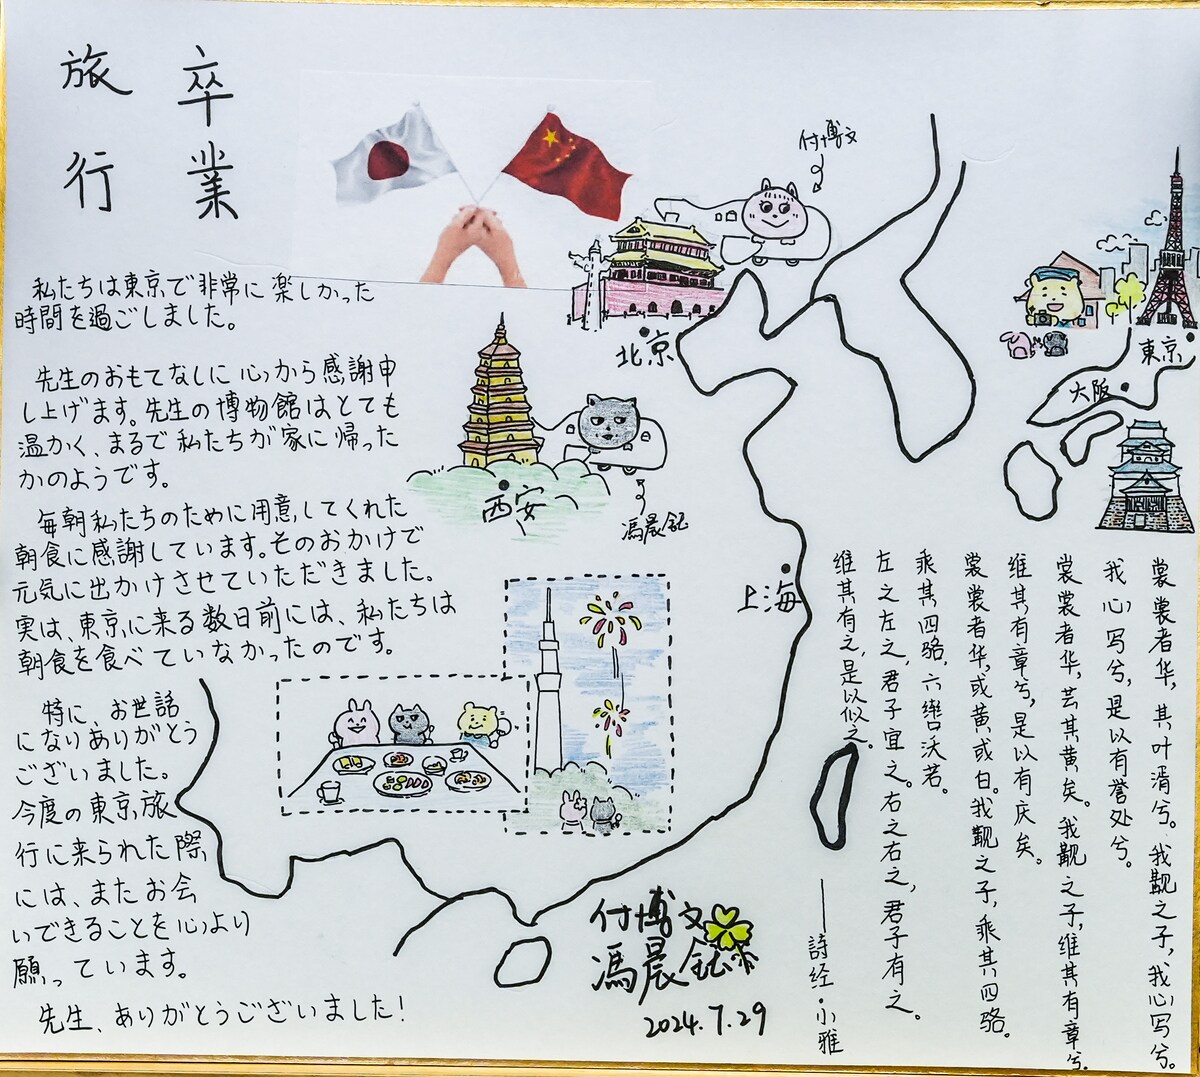 卒業
旅行
私たちは東京で非常に楽しかった
時間を過ごしました。
先生のおもてなしに心から感謝申
し上げます。先生の博物館はとても
温かく、まるで私たちが家に帰った
かのようです。
毎朝私たちのために用意してくれた
朝食に感謝しています。そのおかげで
元気に出かけさせていただきました。
実は、東京に来る数日前には、私たちは
朝食を食べていなかったのです。
特に、お世話
になりありがとう
ございました。
今度の東京旅
行に来られた際
には、またお会
いできることを心より
願っています。
先生、ありがとうございました!
付博文
北京
西安
馮晨鈺
上海
東京
大阪
裳裳者华,其叶湑兮。我觏之子,我心写兮。
我心写兮,是以有誉处兮。
裳裳者华,芸其黄矣。我觏之子,维其有章兮。
维其有章兮,是以有庆矣。
裳裳者华,或黄或白。我觏之子,乘其四骆。
乘其四骆,六辔沃若。
左之左之,君子宜之。右之右之,君子有之。
维其有之,是以似之。
——詩经·小雅
付博文
馮晨鈺
2024.7.29